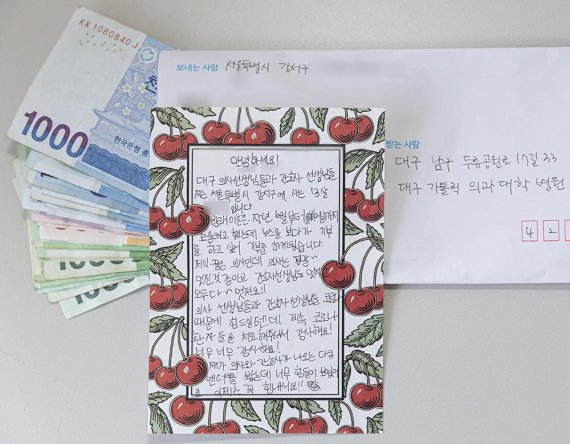 KK1080840J
1000
한국은행
보내는 사람 서울특별시 강서구
받는 사람
대구 남구 두류공원로 17길 33
대구 가톨릭 의과 대학 병원
4 2
안녕하세요!
대구 의사선생님들과 간호사 선생님들
저는 서울특별시 강서구에 사는 13살
입니다
모으려고 했는데 뉴스를 보다가 기부
를 하고 싶어 기부를 하게되었습니다
저의 꿈은 의사인데 의사는 정말
멋진것 같아요 간호사선생님도 멋져요
모두다 멋져요!!
의사 선생님들과 간호사 선생님들 코로나
때문에 힘드실텐데 계속 코로나
환자들을 치료해주셔서 감사해요!
너무 너무 감사해요!
제가 의사와 간호사가 나오는 다큐
멘터리를 봤는데 너무 힘들어 보였어
요 이제는 꼭 힘내세요!!
1000